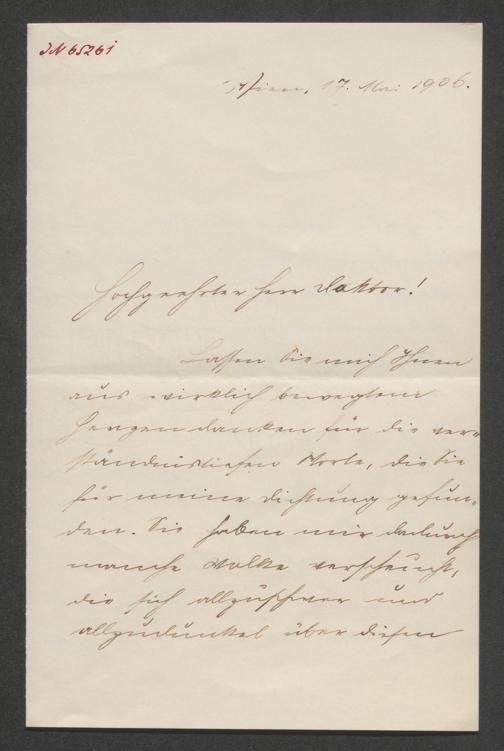 JN 65261
Wien, 17. Mai 1906.
Hochgeehrter Herr Doktor!
Lassen Sie mich Ihnen
aus wirklich bewegtem
Herzen danken für die ver-
ständnistiefen Worte, die Sie
für meine Dichtung gefun-
den. Sie haben mir dadurch
manche Wolke verscheucht,
die sich allzuschwer und
allzudunkel über diesen